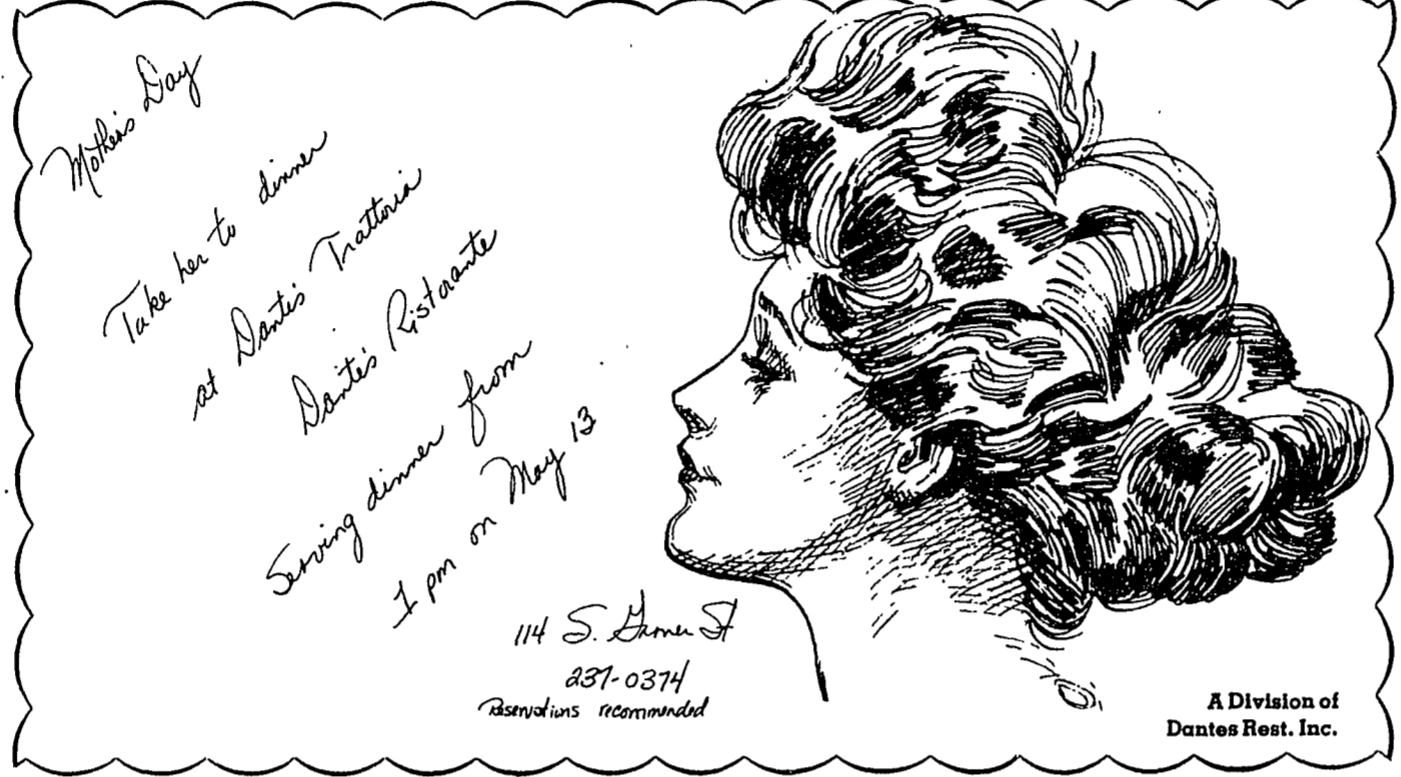 Mother's Day
Take her to dinner
at Dante's Trattoria
Dante's Ristorante
Serving dinner from
1 pm on May 13
114 S. Garner St
237-0374
Reservations recommended
A Division of
Dantes Rest. Inc.